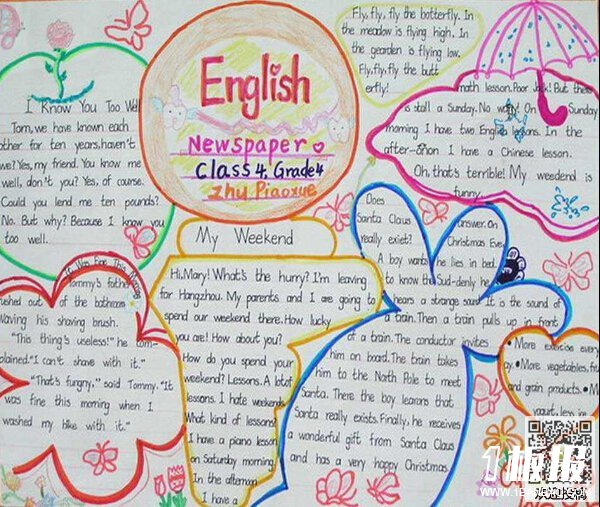 English
Newspaper
Class 4, Grade 4
Zhu Piaoxue
Fly, fly, fly the botterfly. In
the meadow is flying high. In
the gearden is flying low.
Fly, fly, fly the butt
erfly!
I Know You Too Well
Tom, we have known each
other for ten years, haven't
we? Yes, my friend. You know me
well, don't you? Yes, of course.
Could you lend me ten pounds?
No. But why? Because I know you
too well.
It Was Fine This Morning
Tommy's father
rushed out of the bathroom
waving his shaving brush.
"This thing's useless!" he tom-
plained. "I can't shave with it."
"That's fungny," said Tommy. "It
was fine this morning when I
washed my bike with it."
My Weekend
Hi, Mary! What's the hurry? I'm leaving
for Hangzhou. My parents and I are going to
spend our weekend there. How lucky
you are! How about you?
How do you spend your
weekend? Lessons. A lot of
lessons. I hate weekends
What kind of lessons?
I have a piano lesson
on Saturday morning
In the afternoon
I have a
math lesson. Poor Jack! But there
is stall a Sunday. No way! On Sunday
morning I have two English lessons. In the
after-noon I have a Chinese lesson.
Oh, that's terrible! My weedend is
funny
Does
Santa Claus
really exiet?
A boy wants
to know the
answer. On
Christmas Eve,
he lies in bed.
Sud-denly he
hears a strange sound. It is the sound of
a train. Then a train pulls up in front
of a train. The conductor invites
him on board. The train takes
him to the North Pole to meet
Santa. There the boy learons that
Santa really exists. Finally, he receives
a wonderful gift from Santa Claus
and has a very happy Christmas.
• More exercise every
• More vegetables, fruit
and grain products. • M
yogurt, less ice
板报
欢迎投稿